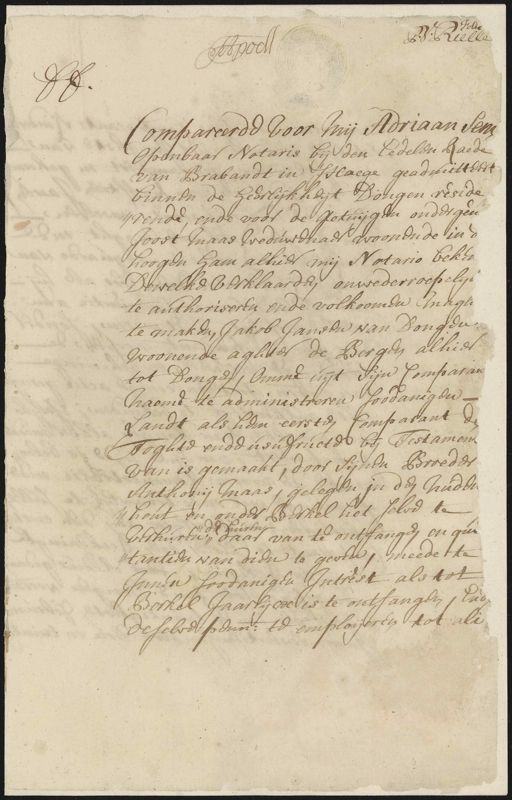 Compareerde voor Mij Adriaan
Openbaar Notaris bij den Eedelen Raede
van Brabandt in s'Haege geadmitteert
binnen de Heerlijkheijt Dongen reside
rende, ende voor de getuijgen ondergen
Joost Maas Weduwenaer woonende in d
hoogen Ham alhier mij Notario beken
Dewelke verklaarde, onwederroepelijk
te authoriseren ende volkoomen
te maken, Jakob Jansen van Dongen,
woonende aghter de Bergen alhier
tot Dongen, Omme uijt Sijn Comparan
Naeme te administreren soodanigen
Landt als hem eersten Comparant de
Toghte ende usufructe bij Testament
van is gemaakt, door Sijnen Broeder
Anthonij Maas, gelegen in den
hout en onder Berkel het selve te
verhuren, de huuren daar van te ontfangen, en qui
tantien van dien te geven, meede te
Innen soodanigen Intrest als tot
Berkel Jaarlijx is te ontfangen, En
deselve penn: te employeren tot